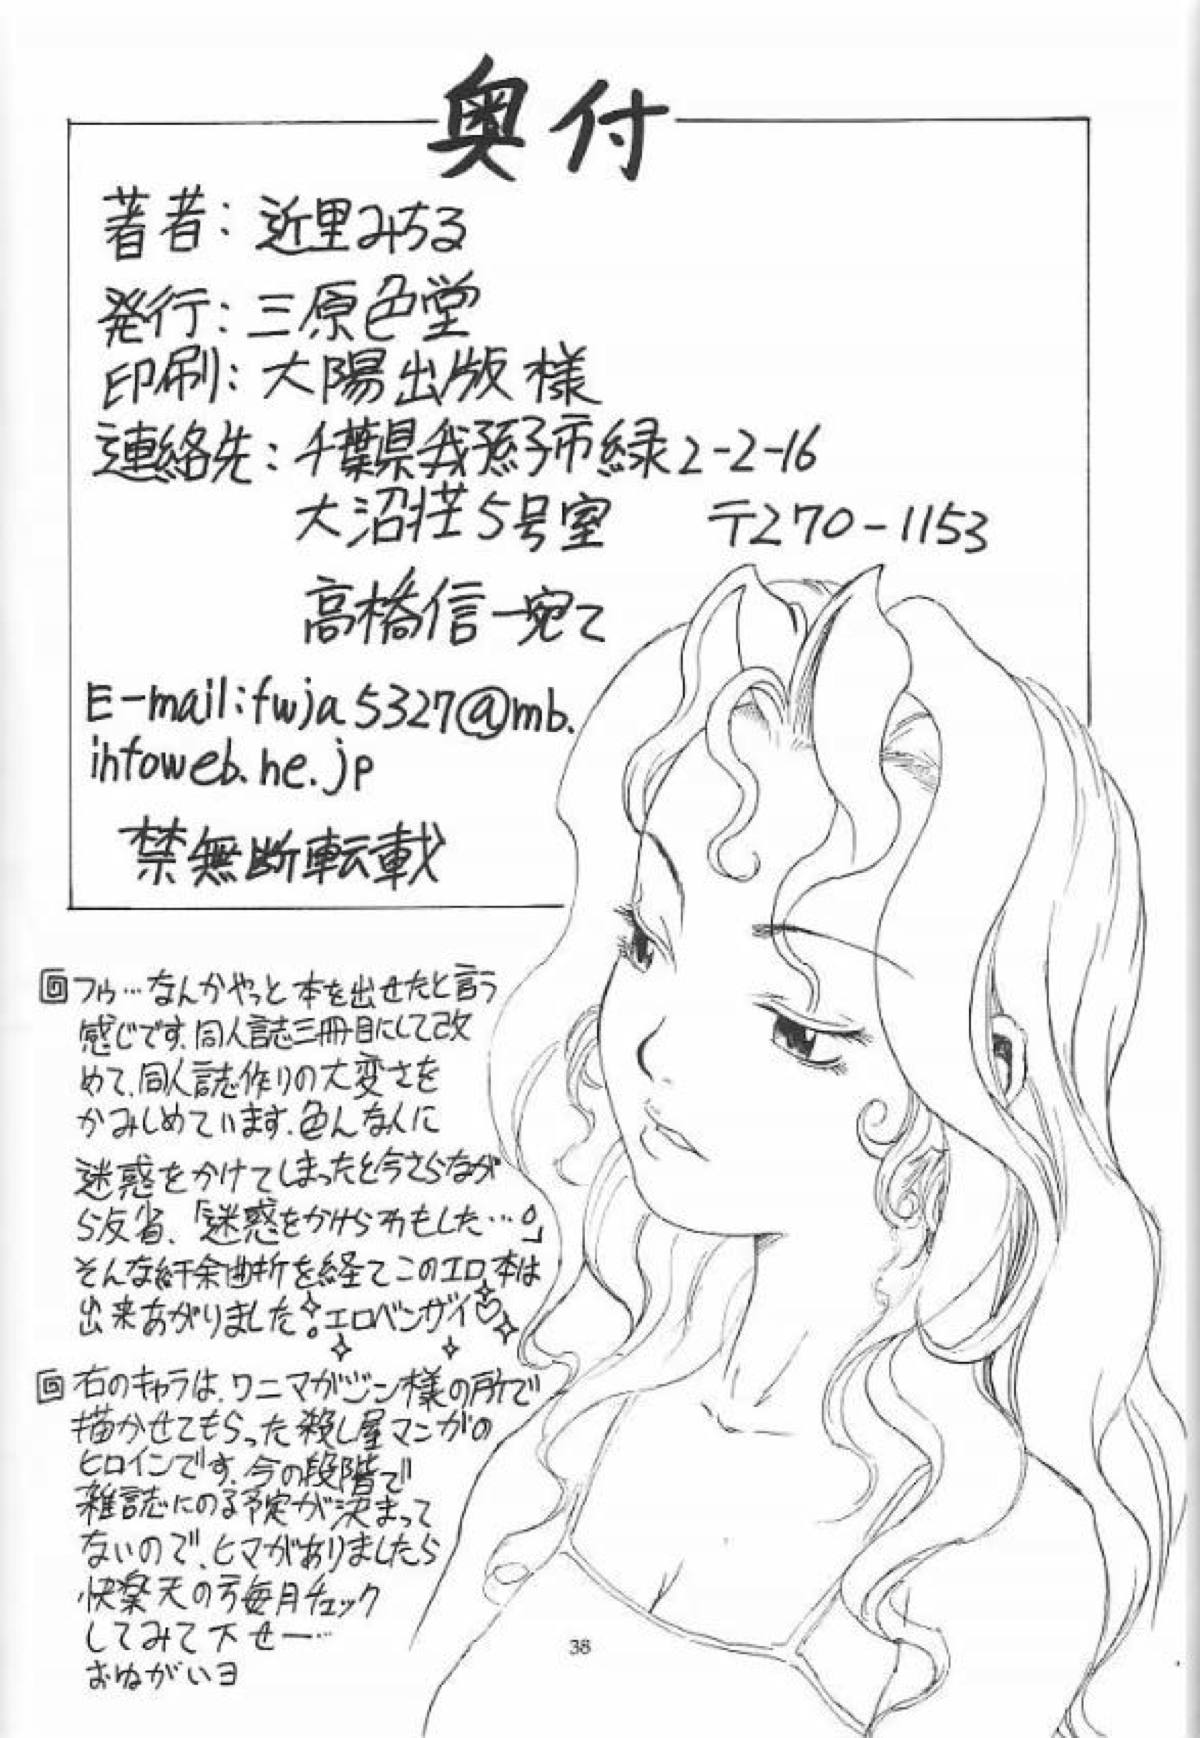 奥付
著者：近里みちる
発行：三原色堂
印刷：大陽出版様
連絡先：千葉県我孫子市緑2-2-16
大沼荘5号室 〒270-1153
高橋信一宛て
E-mail:fwja5327@mb.
infoweb.ne.jp
禁無断転載
フゥ…なんかやっと本を出せたと言う
感じです。同人誌三冊目にして改
めて、同人誌作りの大変さを
かみしめています。色んな人に
迷惑をかけてしまったと今さらなが
ら反省、「迷惑をかけらわもした…。」
そんな紆余曲折を経てこのエロ本は
出来あがりました。エロベンザイ♡
右のキャラは、ワニマガジン様の所で
描かせてもらった殺し屋マンガの
ヒロインです。今の段階で
雑誌にのる予定が決まって
ないので、ヒマがありましたら
快楽天の方毎月チェック
してみて下せー…
おねがいヨ
38